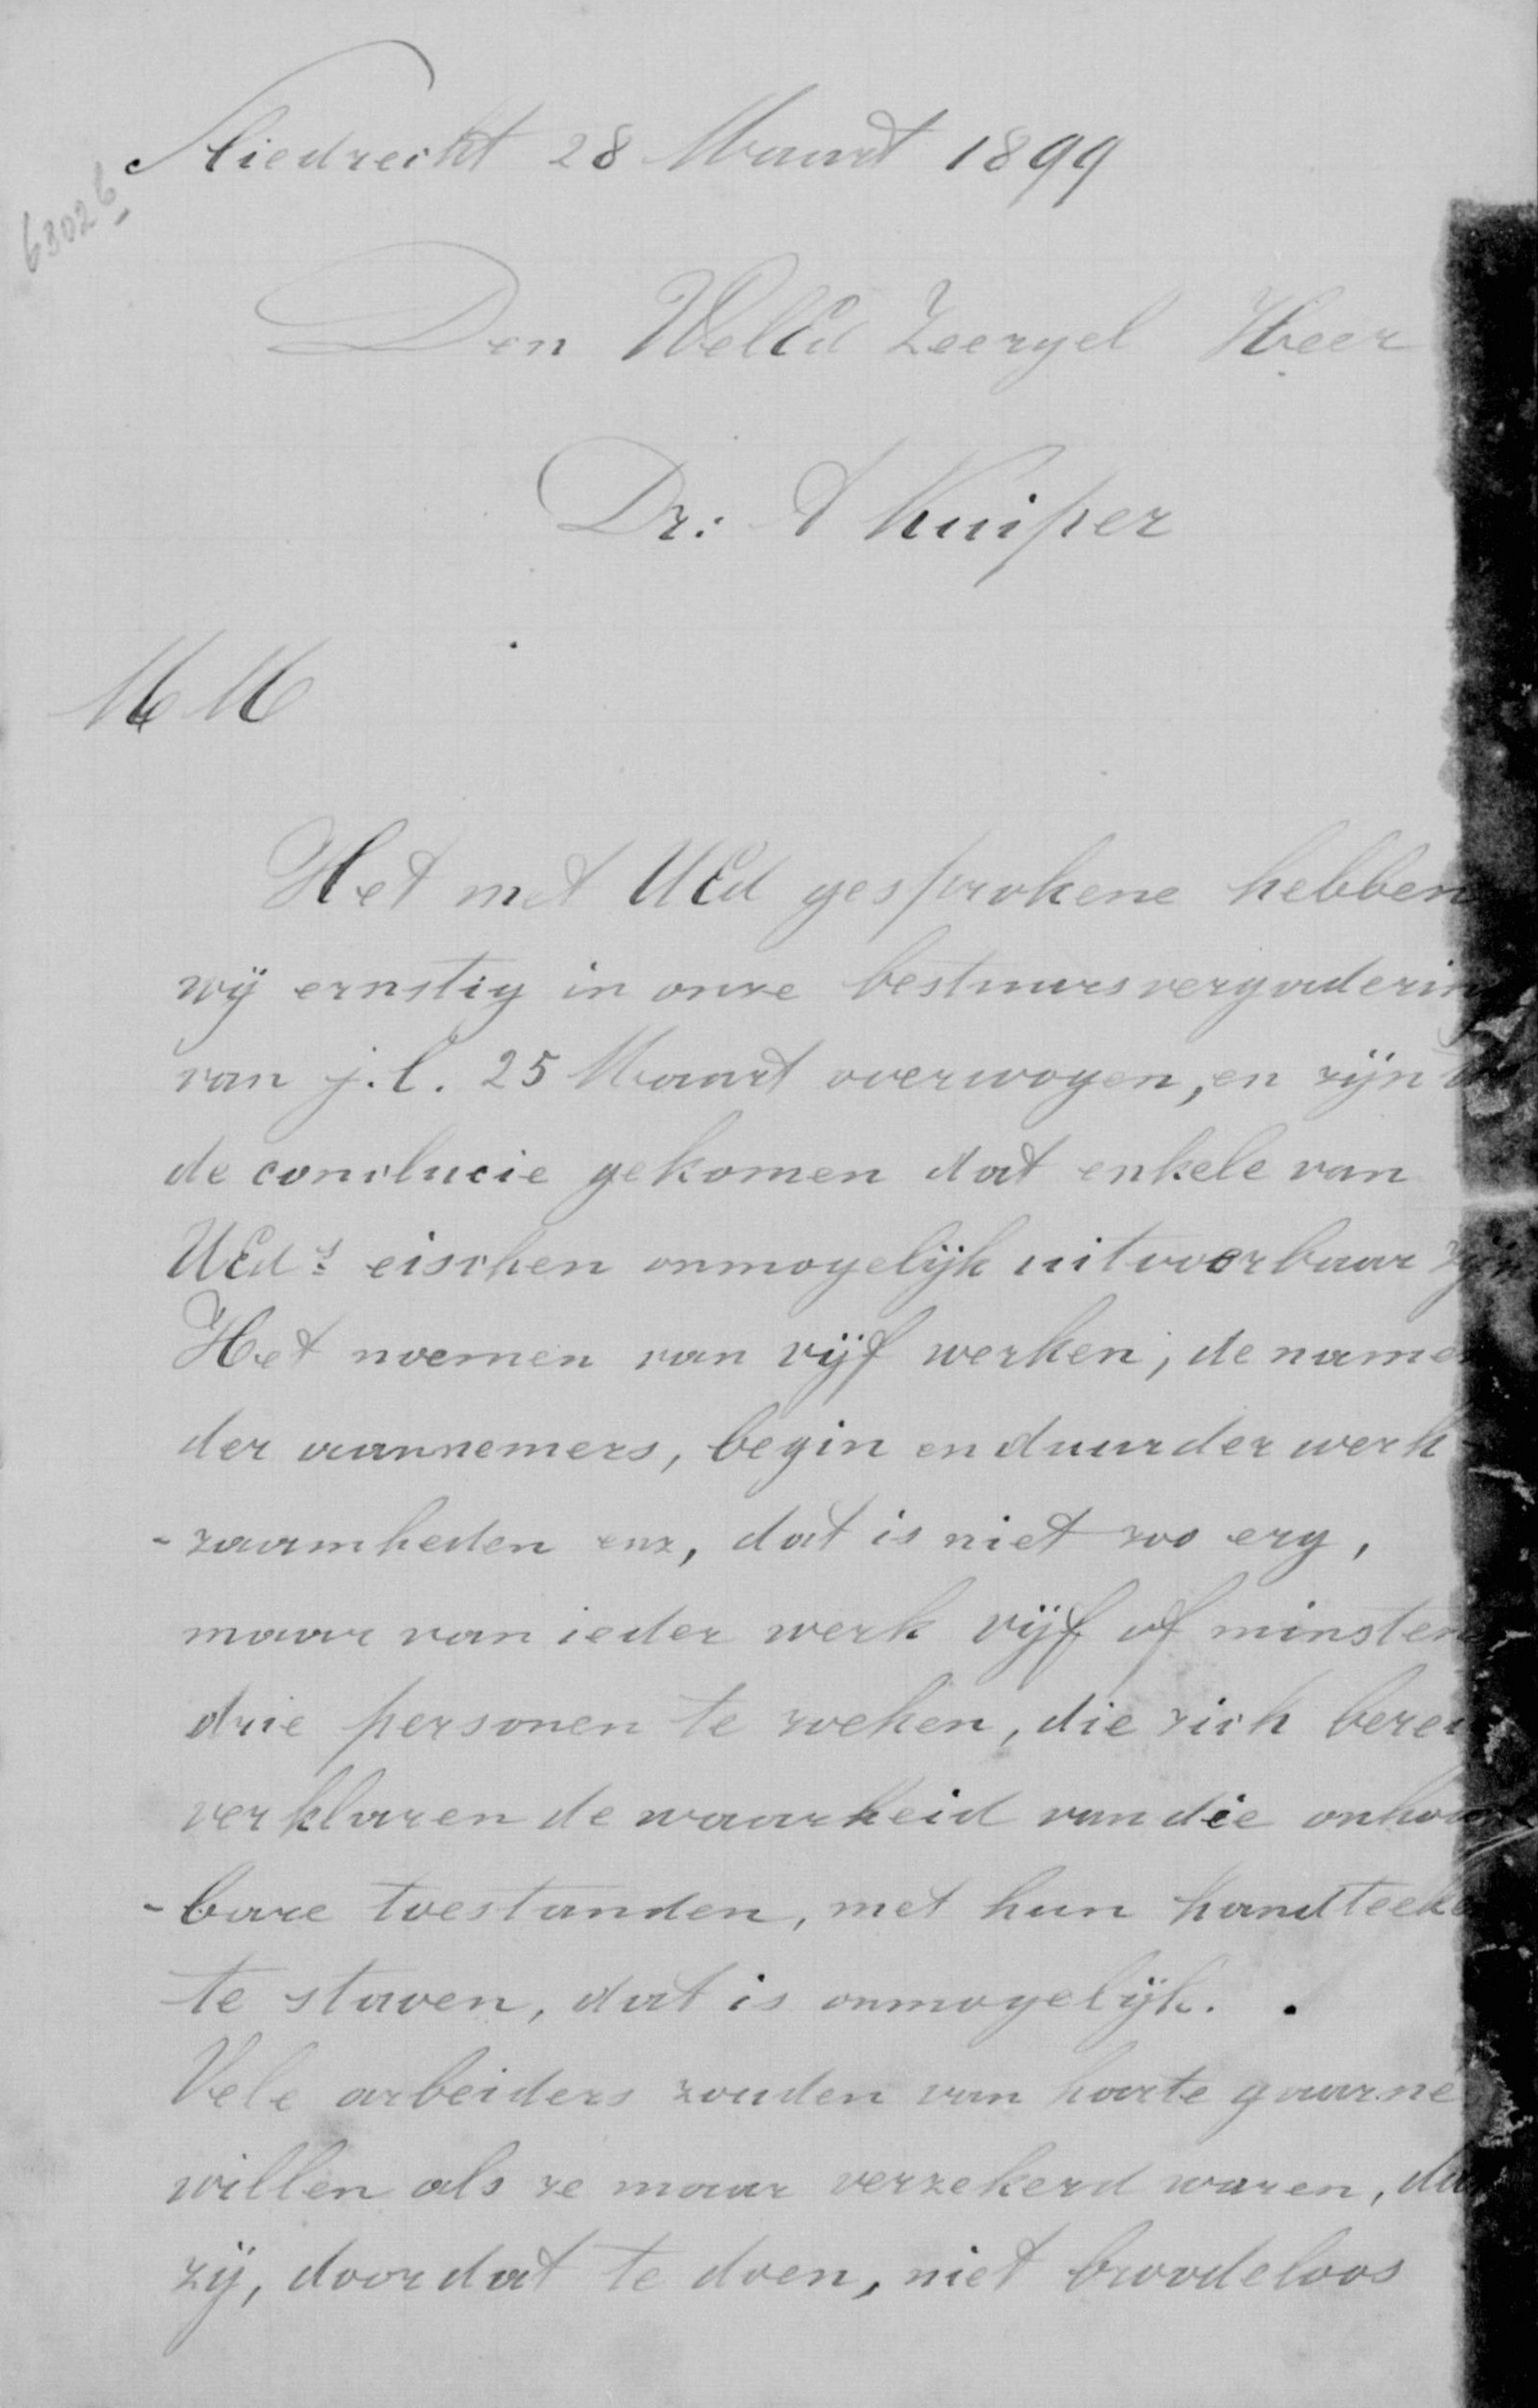 Sliedrecht 28 Maart 1899
6302 6
Den WelEd Zeergel Heer
Dr: A Kuiper
M M
Het met UEd gesprokene hebben
wij ernstig in onze bestuursvergadering
van j.l. 25 Maart overwogen, en zijn
de conclucie gekomen dat enkele van
UEds eischen onmogelijk uitvoerbaar zijn
Het noemen van vijf werken, de namen
der aannemers, begin en duur der werk
-zaamheden enz, dat is niet zoo erg,
maar van ieder werk vijf of minstens
drie personen te zoeken, die zich berei
verklaren de waarheid van die onhou
-bare toestanden, met hun handteeke
te staven, dat is onmogelijk.
Vele arbeiders zouden van harte gaarne
willen als ze maar verzekerd waren, dat
zij, door dat te doen, niet broodeloos